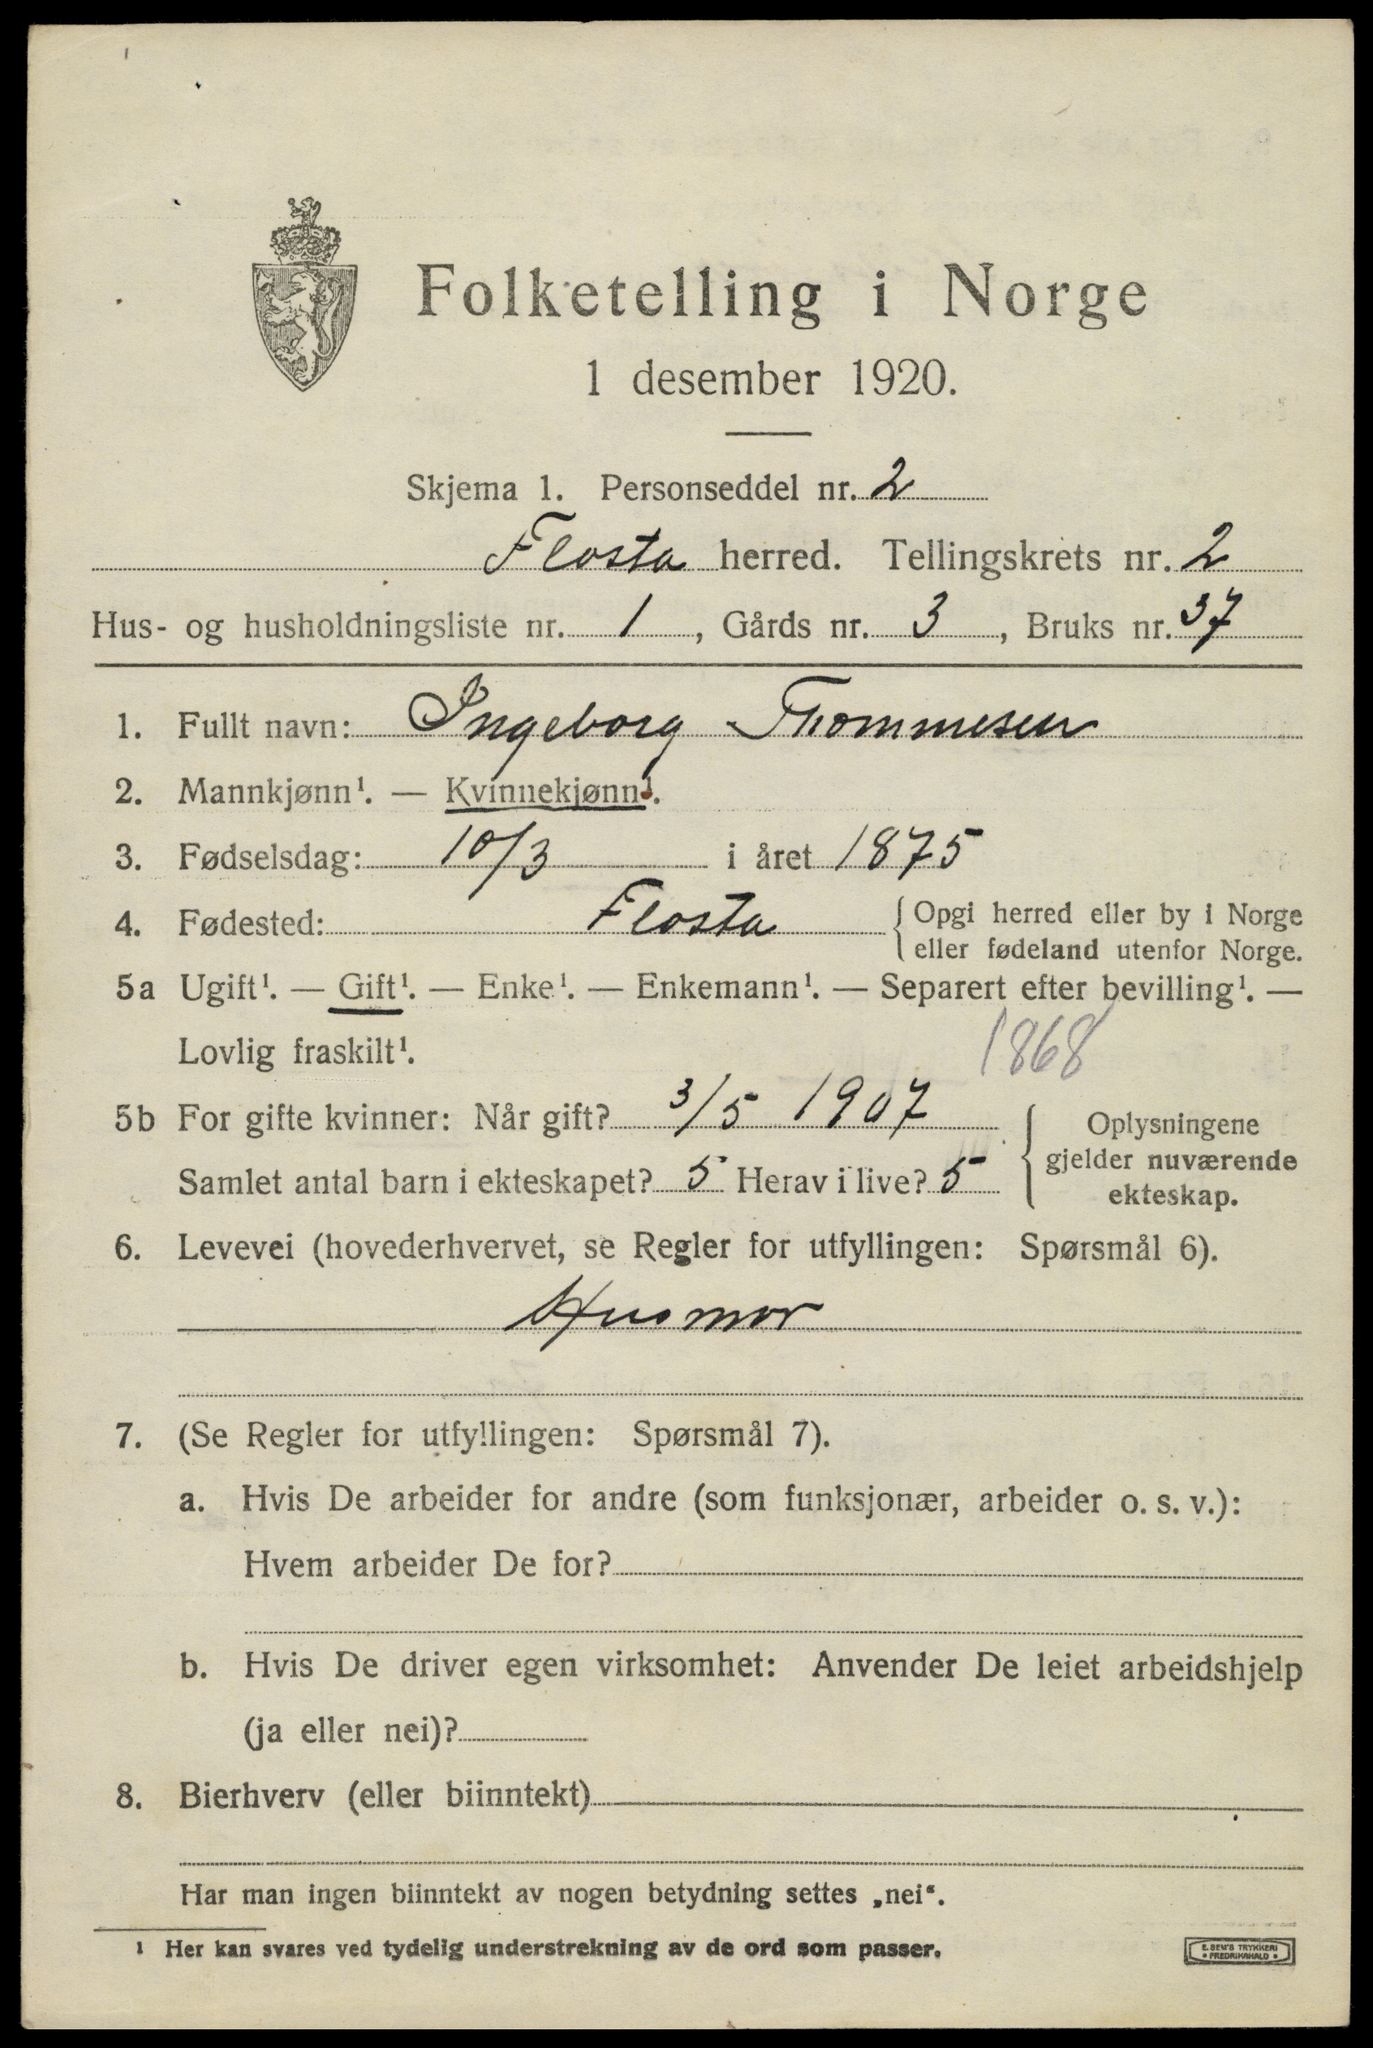 Folketelling i Norge
1 desember 1920.
Skjema 1. Personseddel nr. 2
Flosta herred. Tellingskrets nr. 2
Hus- og husholdningsliste nr. 1, Gårds nr. 3, Bruks nr. 37
1. Fullt navn: Ingeborg Thommesen
2. Mannkjønn¹. — Kvinnekjønn¹.
3. Fødselsdag: 10/3 i året 1875
4. Fødested: Flosta { Opgi herred eller by i Norge
eller fødeland utenfor Norge.
5a Ugift¹. — Gift¹. — Enke¹. — Enkemann¹. — Separert efter bevilling¹. —
Lovlig fraskilt¹. 1868
5b For gifte kvinner: Når gift? 3/5 1907 { Oplysningene
gjelder nuværende
Samlet antal barn i ekteskapet? 5 Herav i live? 5 ekteskap.
6. Levevei (hovederhvervet, se Regler for utfyllingen: Spørsmål 6).
Husmor
7. (Se Regler for utfyllingen: Spørsmål 7).
a. Hvis De arbeider for andre (som funksjonær, arbeider o. s. v.):
Hvem arbeider De for?
b. Hvis De driver egen virksomhet: Anvender De leiet arbeidshjelp
(ja eller nei)?
8. Bierhverv (eller biinntekt)
Har man ingen biinntekt av nogen betydning settes „nei“.
¹ Her kan svares ved tydelig understrekning av de ord som passer.
E. SEM'S TRYKKERI
• FREDRIKSHALD •